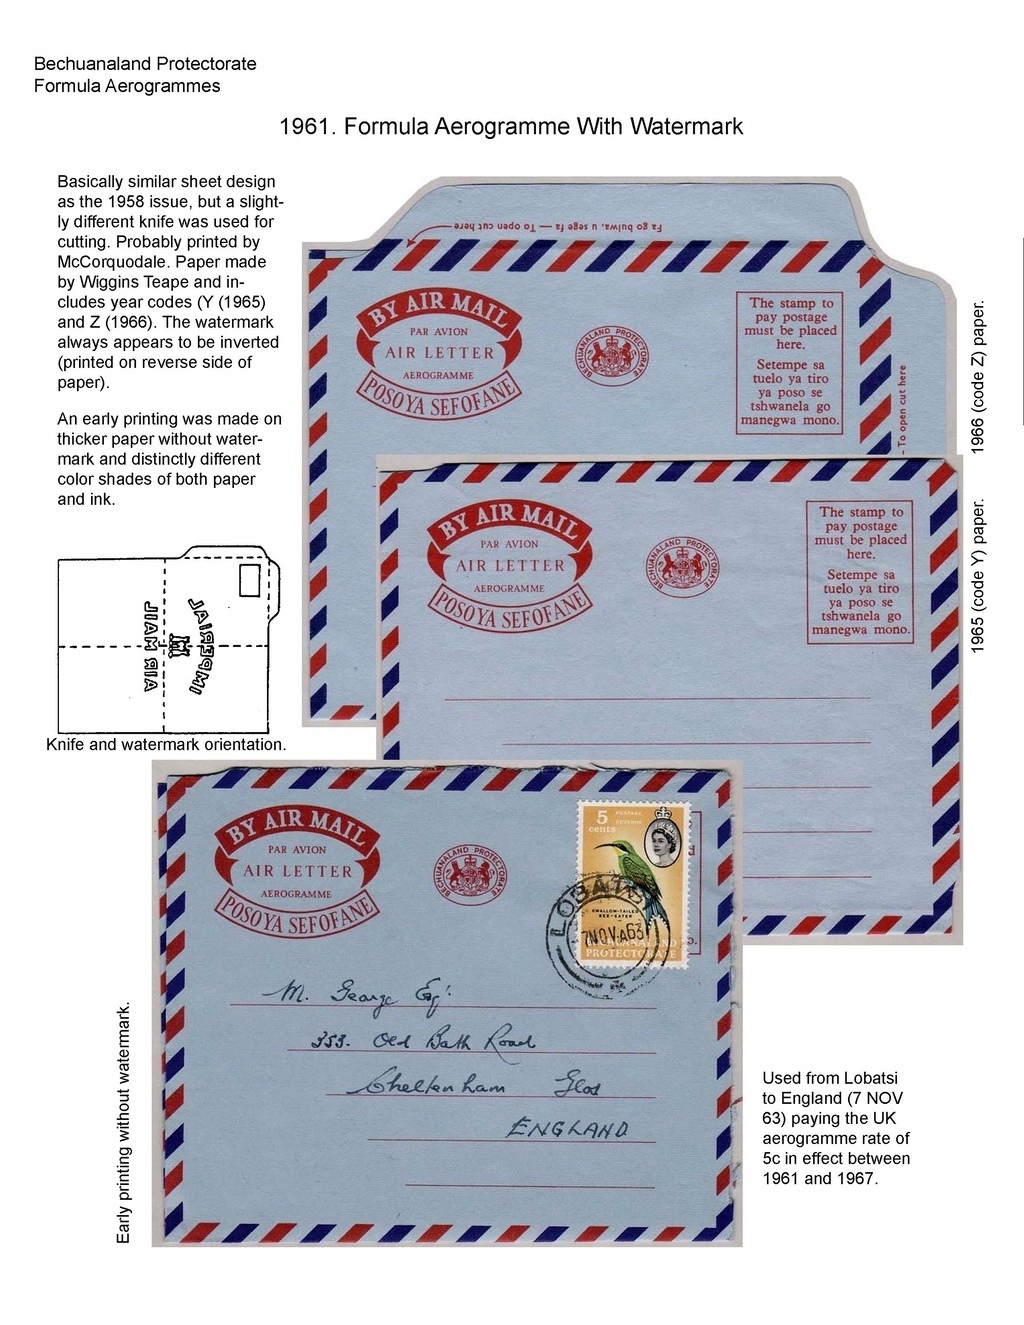 Bechuanaland Protectorate
Formula Aerogrammes
1961. Formula Aerogramme With Watermark
Basically similar sheet design
as the 1958 issue, but a slight-
ly different knife was used for
cutting. Probably printed by
McCorquodale. Paper made
by Wiggins Teape and in-
cludes year codes (Y (1965)
and Z (1966). The watermark
always appears to be inverted
(printed on reverse side of
paper).
An early printing was made on
thicker paper without water-
mark and distinctly different
color shades of both paper
and ink.
IMPERIAL
AIR MAIL
Knife and watermark orientation.
Fa go bulwa, u sege fa — To open cut here
BY AIR MAIL
PAR AVION
AIR LETTER
AEROGRAMME
POSO YA SEFOFANE
BECHUANALAND PROTECTORATE
The stamp to
pay postage
must be placed
here.
Setempe sa
tuelo ya tiro
ya poso se
tshwanela go
manegwa mono.
– To open cut here
1966 (code Z) paper.
BY AIR MAIL
PAR AVION
AIR LETTER
AEROGRAMME
POSO YA SEFOFANE
BECHUANALAND PROTECTORATE
The stamp to
pay postage
must be placed
here.
Setempe sa
tuelo ya tiro
ya poso se
tshwanela go
manegwa mono.
1965 (code Y) paper.
BY AIR MAIL
PAR AVION
AIR LETTER
AEROGRAMME
POSO YA SEFOFANE
BECHUANALAND PROTECTORATE
5
cents
POSTAGE
REVENUE
SWALLOW-TAILED
BEE-EATER
BECHUANALAND
PROTECTORATE
LOBATSI
7 NOV 63
o.
M. George Esq.
353. Old Bath Road
Cheltenham Glos
ENGLAND
Early printing without watermark.
Used from Lobatsi
to England (7 NOV
63) paying the UK
aerogramme rate of
5c in effect between
1961 and 1967.